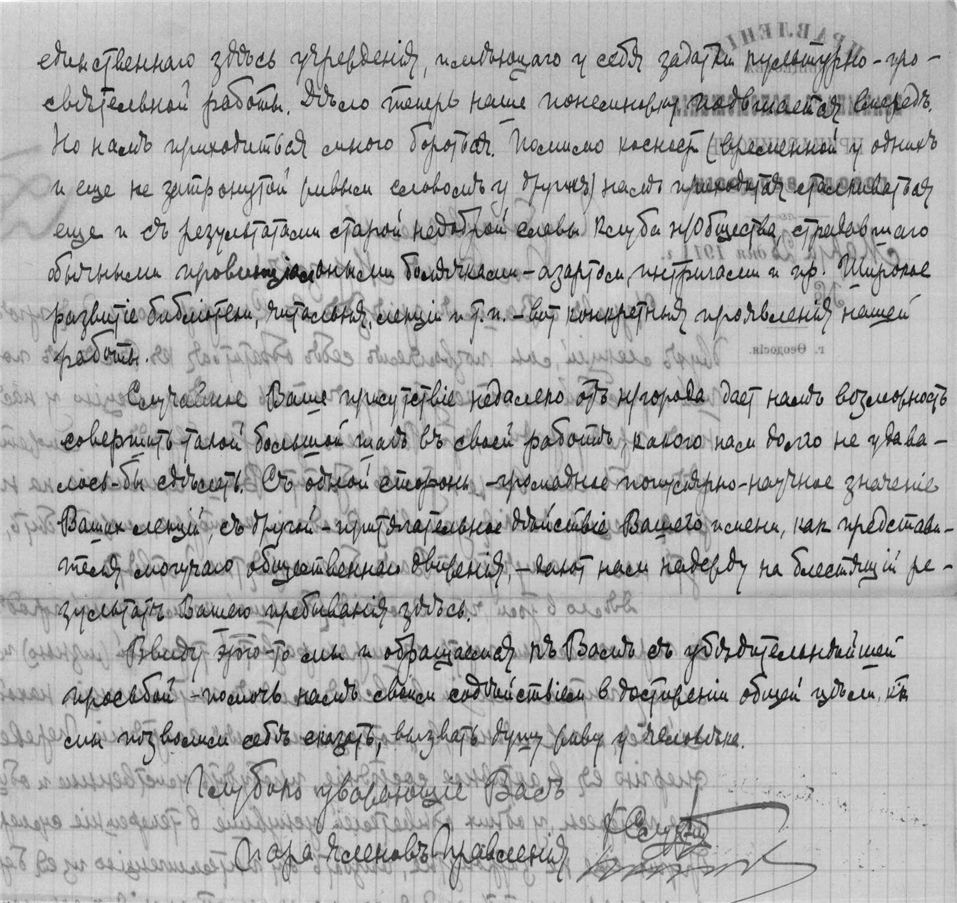 единственнаго здѣсь учрежденія, имѣющаго у себя задатки культурно-про-
свѣтительной работы. Дѣло теперь наше понемногу подвигается впередъ.
Но намъ приходиться много бороться. Помимо косност (временной у однихъ
и еще не затронутой живымъ словомъ у другихъ) намъ приходится сталкиваться
еще и съ результатами старой недоброй славы Клуба н/Общества, страдавшаго
обычными провинціальными болячками - азартом, интригами и пр. Широкое
развитіе библіотеки, читальня, лекціи и т.п. - вот конкретныя проявленія нашей
работы.
Случайное Ваше присутствіе недалеко отъ н/города дает намъ возможность
совершить такой большой шагъ въ своей работѣ, какого нам долго не удава-
лось-бы сдѣлать. Съ одной стороны - громадное популярно-научное значеніе
Ваших лекцій, съ другой - притягательное дѣйствіе Вашего имени, как представи-
теля могучаго общественнаго движенія, - дают нам надежду на блестящій ре-
зультатъ Вашего пребыванія здѣсь.
Ввиду этого-то мы и обращаемся къ Вамъ съ убѣдительнѣйшей
просьбой - помочь намъ своим содѣйствіем в достиженіи общей цѣли, кк
мы позволили себѣ сказать, вызвать душу живу у человѣка.
Глубоко уважающіе Васъ
Пара Членовъ Правленія
ПРАВЛЕНІЕ
г. Ѳеодосія.